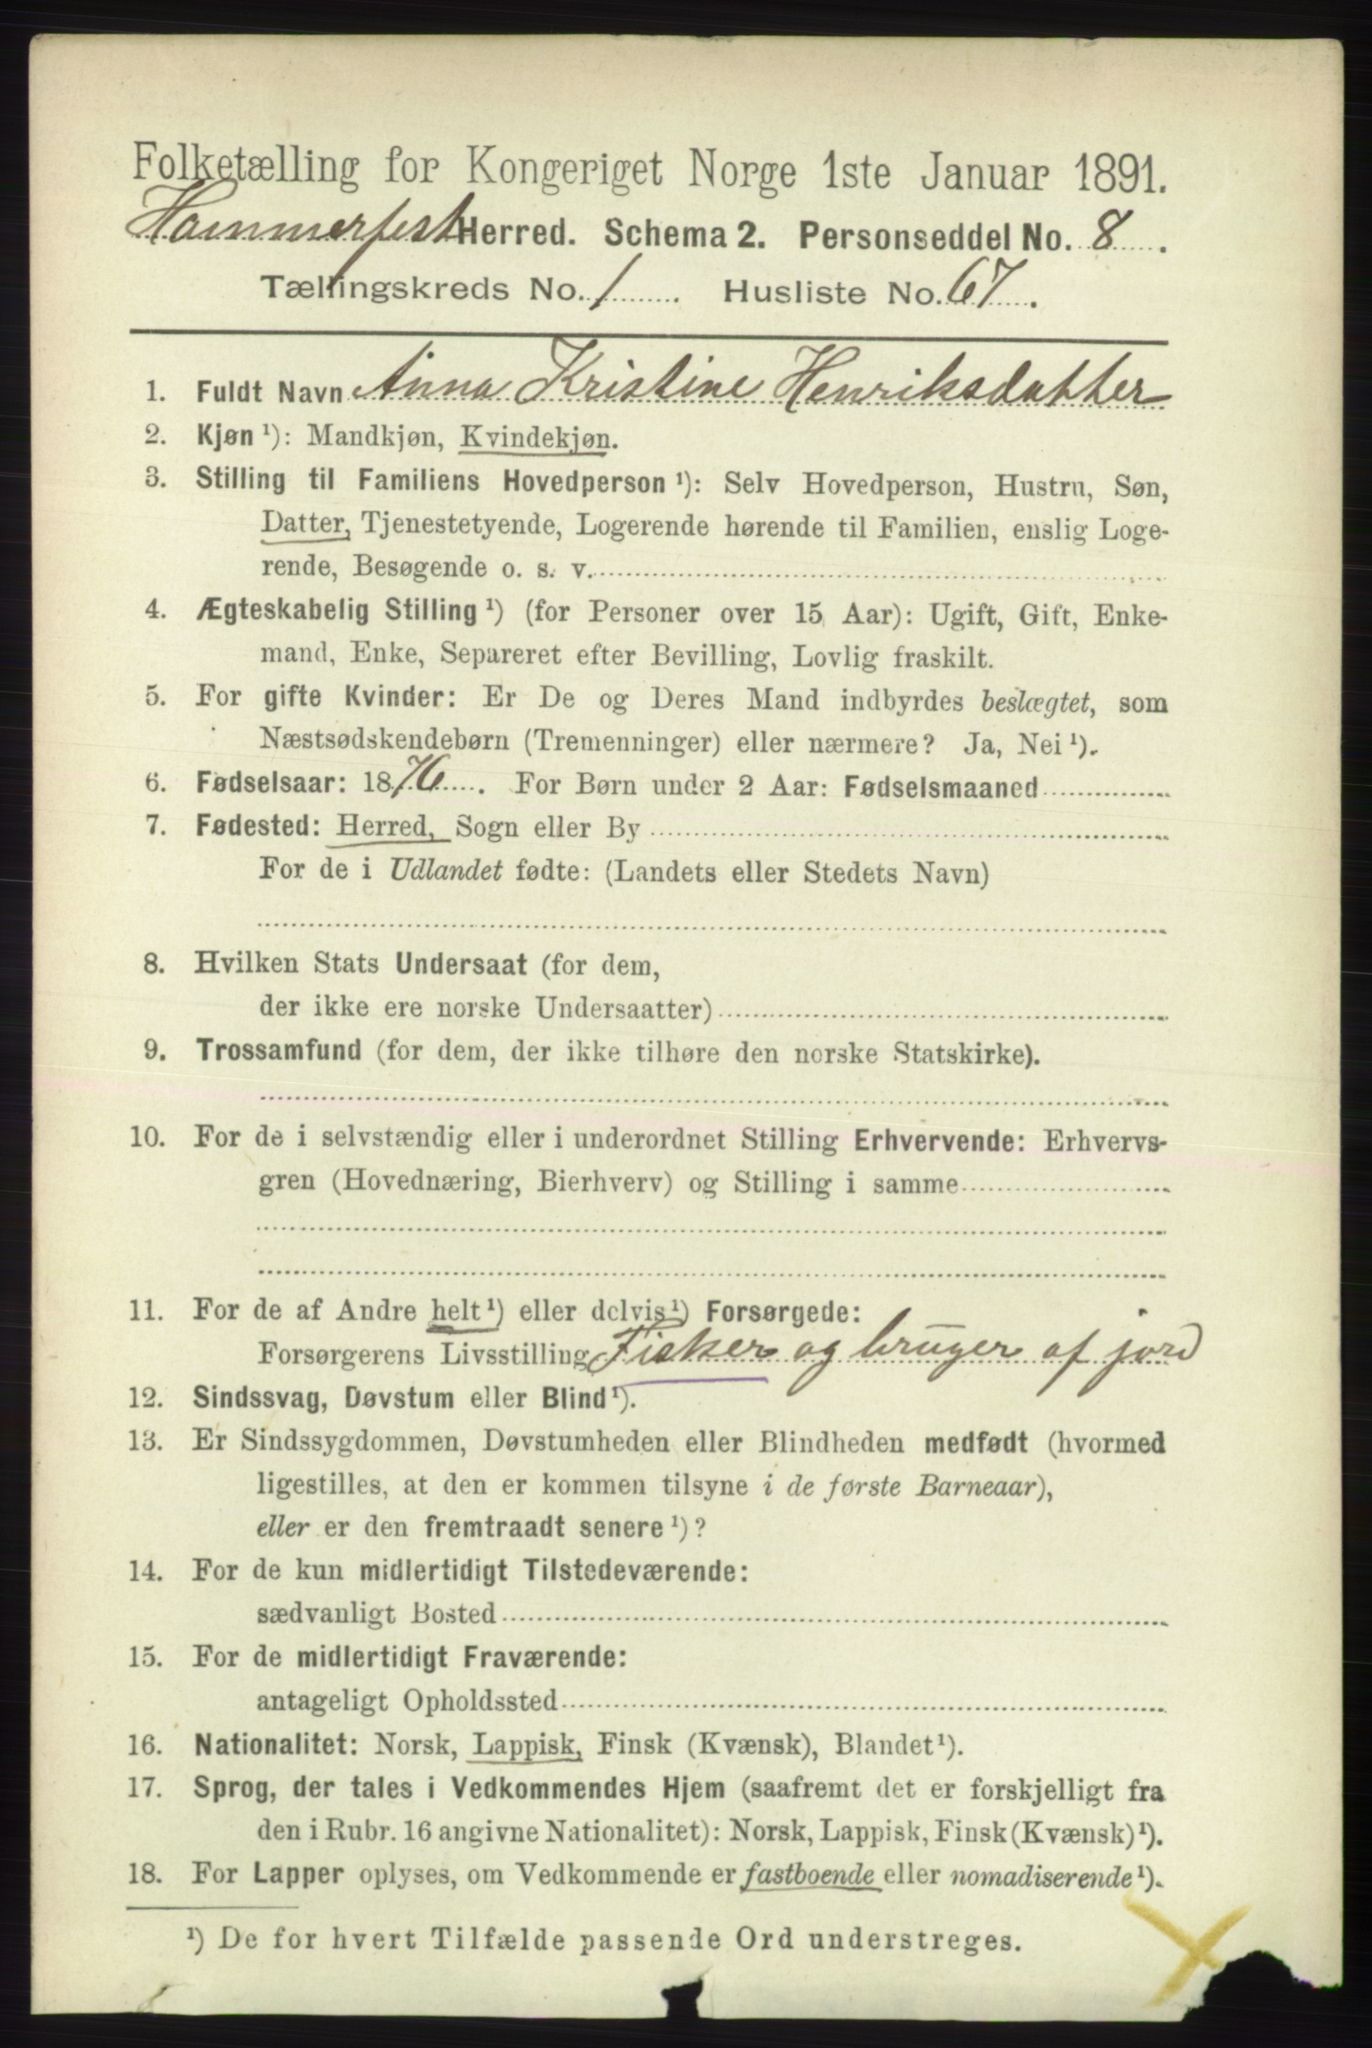 Folketælling for Kongeriget Norge 1ste Januar 1891.
Hammerfest Herred. Schema 2. Personseddel No. 8.
Tællingskreds No. 1 Husliste No. 67.
1. Fuldt Navn Anna Kristine Henriksdatter
2. Kjøn ¹): Mandkjøn, Kvindekjøn.
3. Stilling til Familiens Hovedperson ¹): Selv Hovedperson, Hustru, Søn,
Datter, Tjenestetyende, Logerende hørende til Familien, enslig Loge-
rende, Besøgende o. s. v.
4. Ægteskabelig Stilling ¹) (for Personer over 15 Aar): Ugift, Gift, Enke-
mand, Enke, Separeret efter Bevilling, Lovlig fraskilt.
5. For gifte Kvinder: Er De og Deres Mand indbyrdes beslægtet, som
Næstsødskendebørn (Tremenninger) eller nærmere? Ja, Nei ¹).
6. Fødselsaar: 1876. For Børn under 2 Aar: Fødselsmaaned
7. Fødested: Herred, Sogn eller By
For de i Udlandet fødte: (Landets eller Stedets Navn)
8. Hvilken Stats Undersaat (for dem,
der ikke ere norske Undersaatter)
9. Trossamfund (for dem, der ikke tilhøre den norske Statskirke).
10. For de i selvstændig eller i underordnet Stilling Erhvervende: Erhvervs-
gren (Hovednæring, Bierhverv) og Stilling i samme
11. For de af Andre helt ¹) eller delvis ¹) Forsørgede:
Forsørgerens Livsstilling Fisker og bruger af jord
12. Sindssvag, Døvstum eller Blind ¹).
13. Er Sindssygdommen, Døvstumheden eller Blindheden medfødt (hvormed
ligestilles, at den er kommen tilsyne i de første Barneaar),
eller er den fremtraadt senere ¹)?
14. For de kun midlertidigt Tilstedeværende:
sædvanligt Bosted
15. For de midlertidigt Fraværende:
antageligt Opholdssted
16. Nationalitet: Norsk, Lappisk, Finsk (Kvænsk), Blandet ¹).
17. Sprog, der tales i Vedkommendes Hjem (saafremt det er forskjelligt fra
den i Rubr. 16 angivne Nationalitet): Norsk, Lappisk, Finsk (Kvænsk) ¹).
18. For Lapper oplyses, om Vedkommende er fastboende eller nomadiserende ¹).
¹) De for hvert Tilfælde passende Ord understreges.